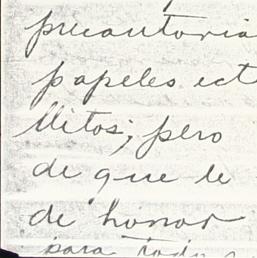 precautoria
papeles ect
llitos; pero
de que le
de honor
para todo